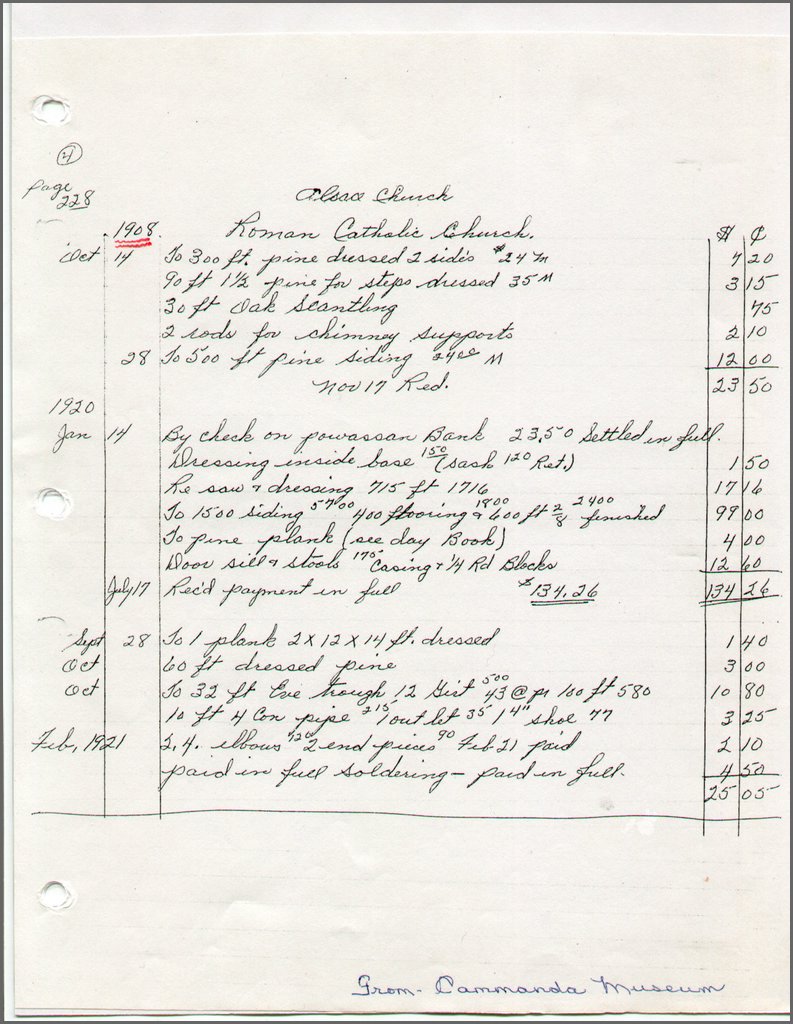 4
Page
228
Alsace Church
1908. Roman Catholic Church. $ ¢
Oct 14 To 300 ft. pine dressed 2 sides $24 m 7 20
90 ft 1 1/2 pine for steps dressed 35 M 3 15
30 ft Oak Scantling 75
2 rods for chimney supports 2 10
28 To 500 ft pine siding 2400 M 12 00
Nov 17 Red. 23 50
1920
Jan 14 By check on powassan Bank 23.50 Settled in full.
Dressing inside base 150 (sash 120 Ret.) 1 50
Re saw & dressing 715 ft 1716 17 16
To 1500 siding 5700 400 flooring 1800 & 600 ft 2/8 2400 finished 99 00
To pine plank (see day Book) 4 00
Door sill & stools 175 Casing + 1/4 Rd Blocks 12 60
July 17 Rec'd payment in full $134.26 134 26
Sept 28 To 1 plank 2 x 12 x 14 ft. dressed 1 40
Oct 60 ft dressed pine 3 00
Oct To 32 ft Eve trough 12 Girt 500 43 @ pr 100 ft 580 10 80
10 ft 4 Con pipe 215 1 outlet 35 1 4" shoe 77 3 25
Feb, 1921 2.4. elbows 120 2 end pieces 90 Feb 21 paid 2 10
paid in full soldering - paid in full. 4 50
25 05
From - Cammanda Museum